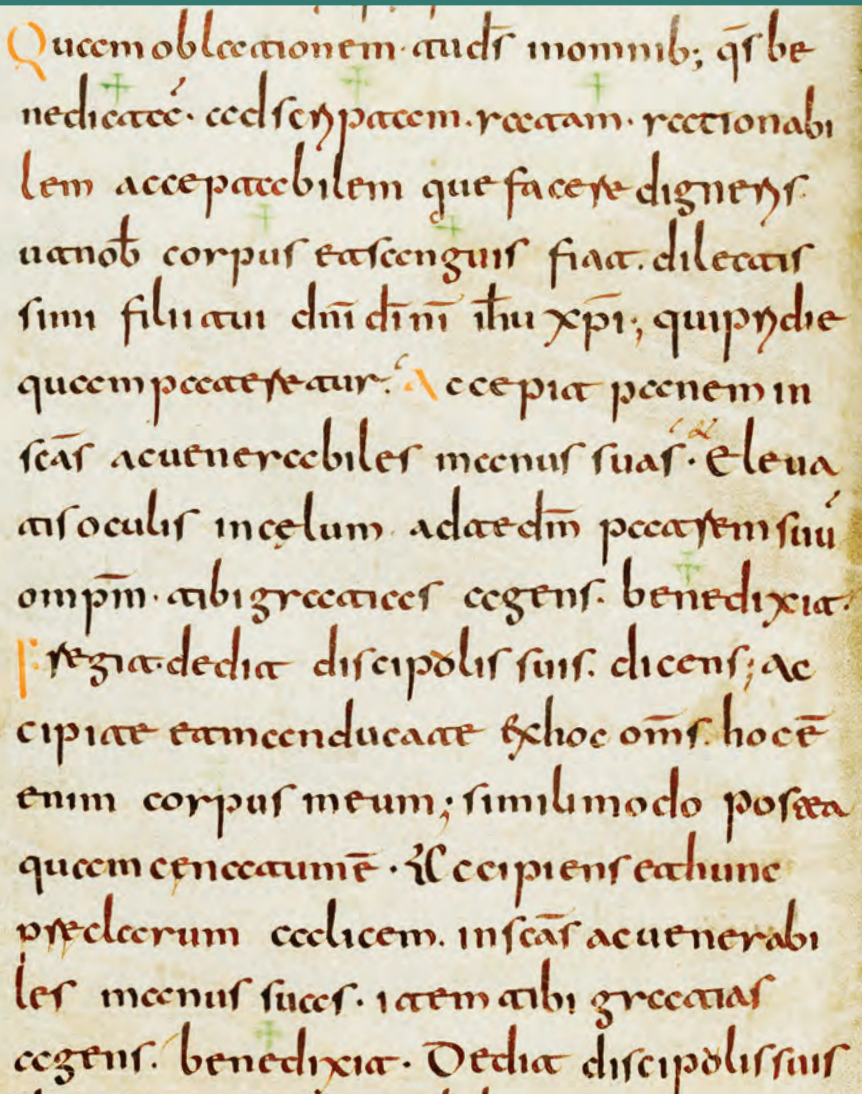 Quam oblationem· tu ds̄ in omnib; qs̄ be
nedictā· adscriptam. ratam· rationabi
lem acceptabilem que facere digneris
ut nob̄ corpus et sanguis fiat. dilectis
simi filii tui dn̄i dī nī ih̄u xp̄i; qui pridie
quam pateretur. Accepit panem in
scās ac uenerabiles manus suas· Eleua
tis oculis in cęlum ad te dm̄ patrem suū
omp̄m· tibi gratias agens. benedixit.
Fregit· dedit discipolis suis. dicens; Ac
cipite et manducate ex hoc om̄s. hoc ē
enim corpus meum; simili modo postea
quam cęnatum ē· Accipiens et hunc
preclarum calicem. in scās ac uenerabi
les manus suas· item tibi gratias
agens. benedixit· Dedit discipolis suis